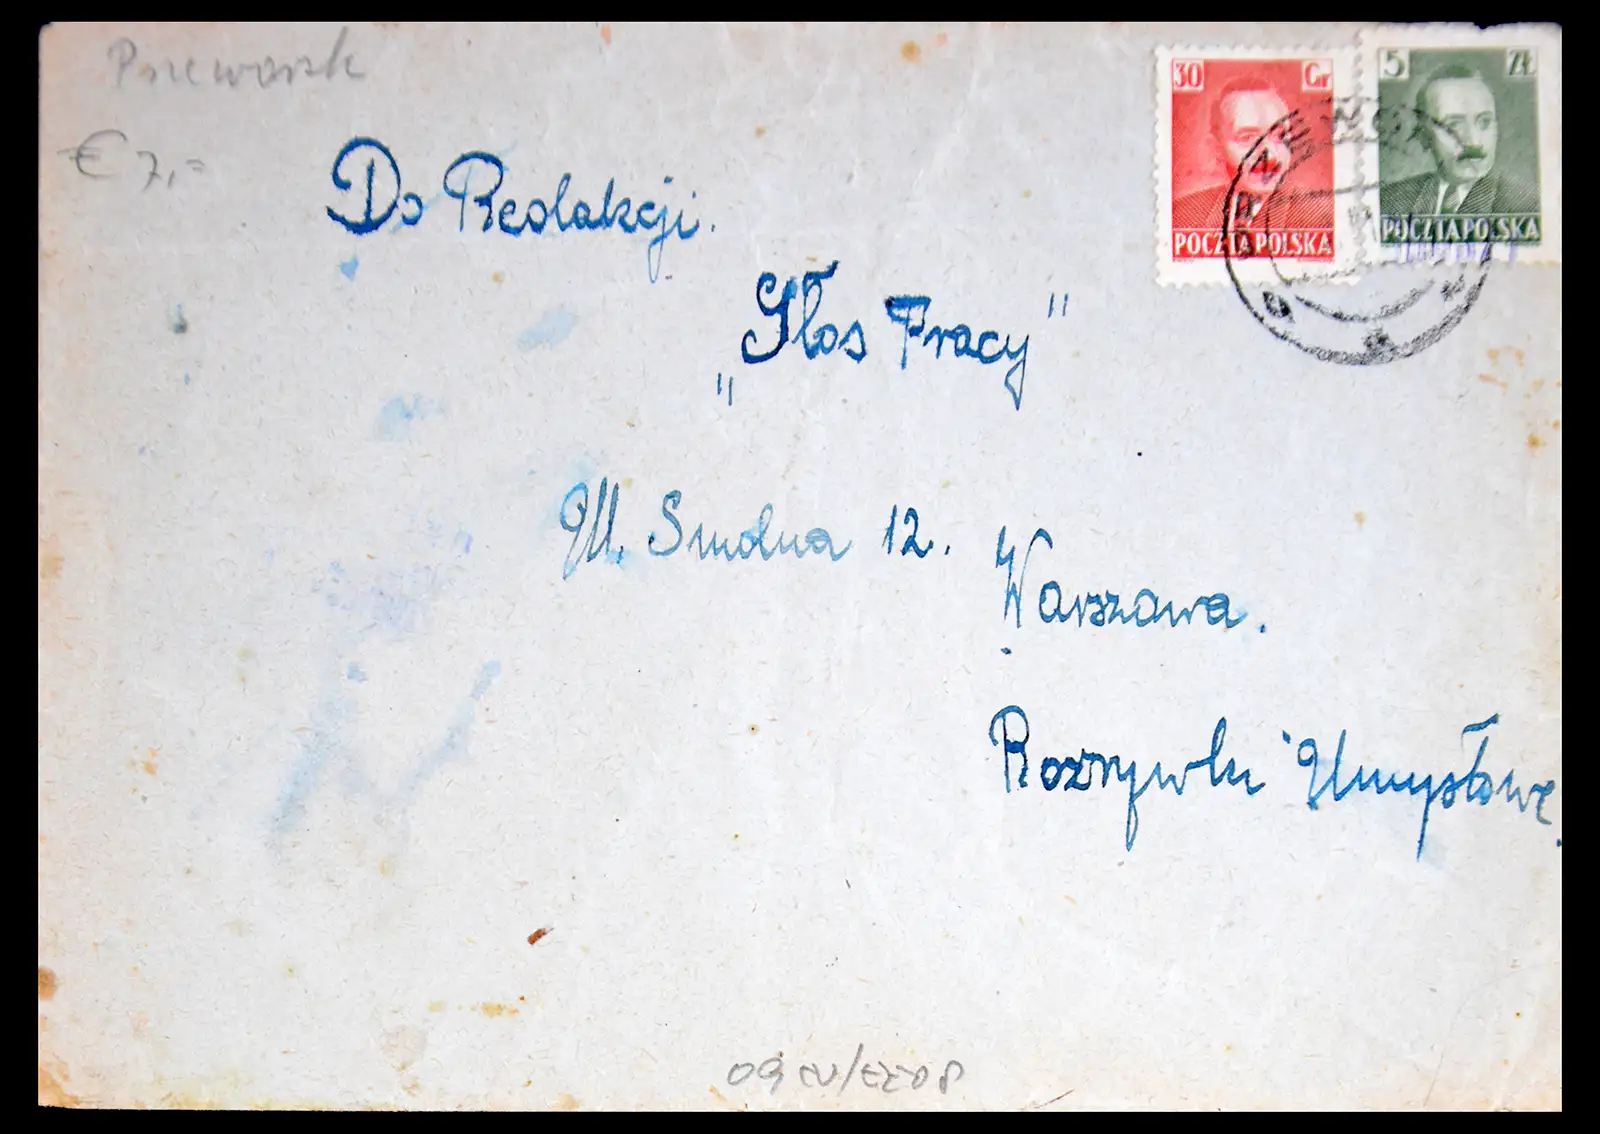 Przeworsk
€ 7,=
30 Gr
POCZTA POLSKA
5 ZŁ
POCZTA POLSKA
PRZEWOR
Do Redakcji.
„Głos Pracy"
Ul. Smolna 12.
Warszawa.
Rozrywki Umysłowe.